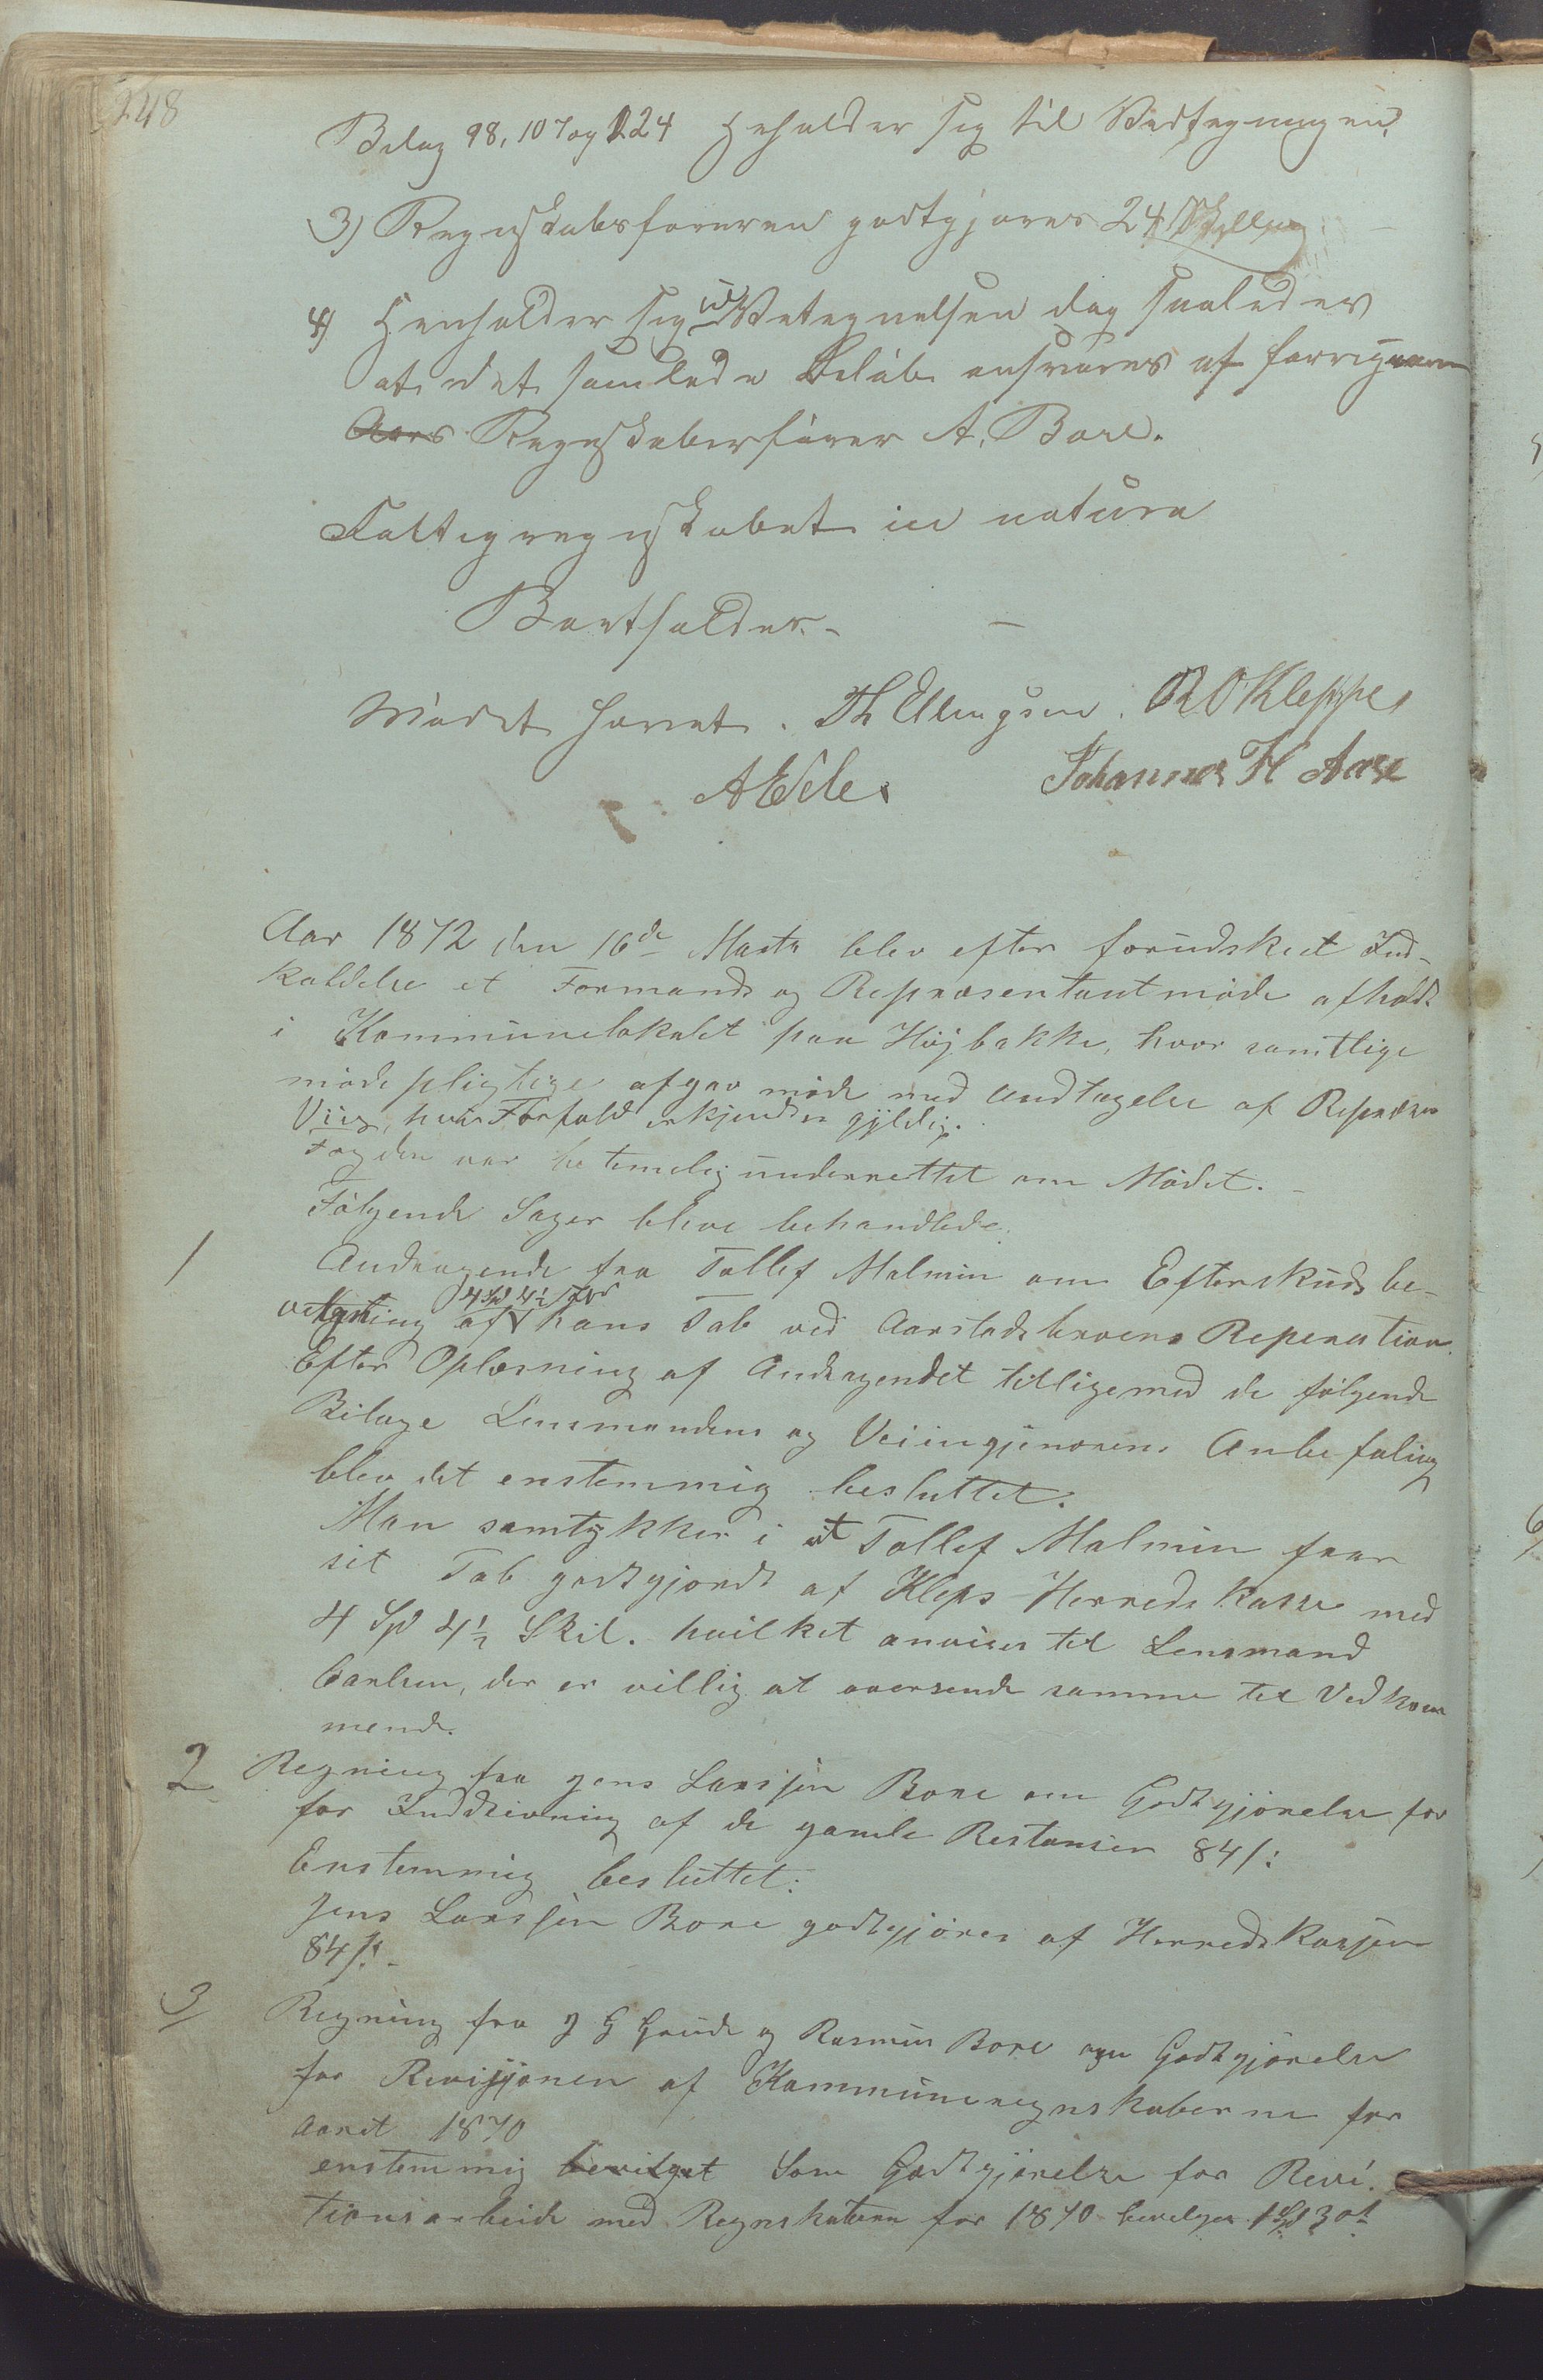 248
Bilag 98, 107 og 124 Heholder sig til Vedtegningen
3) Regnskabsføreren godtgjøres 24 Skilling
4) Henholder sig til Vetegnelsen dog saaledes
at det samlede Beløb ansvares af forrige
Aars Regnskabsfører A. Bore.
Fattigregnskabet in natura
Bortfalder. -
Mødet hævet. Th Ellingsen. R O Kleppe,
A Eele. Johannes H Aase
Aar 1872 den 16de Marts blev efter forudskeet Ind-
kaldelse et Formands og Representantmøde afholdt
i Kommunelokalet paa Højbakke, hvor samtlige
møde pligtige afgav møde med Undtagelse af Repræsen
Viig, hvis Forfald erkjendes gyldig.
Fogden var betimelig underrettet om Mødet. -
Følgende Sager bleve behandlede.
1 Andragende fra Tollef Malmin om Efterskuds be-
vilgning af 4 Spd 4½ s for hans Tab ved Aarstadbroens Reperation.
Efter Oplæsning af Andragendet tilligemed de følgende
Bilage Lensmandens og Veiingjenørens Anbefaling
blev det enstemmig besluttet:
Man samtykker i at Tollef Malmin faar
sit Tab godtgjordt af Kleps Herreds Kasse med
4 Spd 4½ Skil. hvilket anvises til Lensmand
Carlsen, der er villig at oversende samme til Vedkom
mende.
2 Regning fra Jens Larssen Bore om Godtgjørelse for
for Inddrivning af de gamle Restanser 84 s:
Enstemmig besluttet:
Jens Larssen Bore godtgjøres af Herreds Kassen
84 s. -
3/ Regning fra J G Grude og Rasmus Bore om Godtgjørelse
for Revisjonen af Kommuneregnskaberne for
Aaret 1870
enstemmig bevilget Som Godtgjørelse for Revi-
tionsarbeide med Regnskaberne for 1870 bevilges 1 Spd 30 s